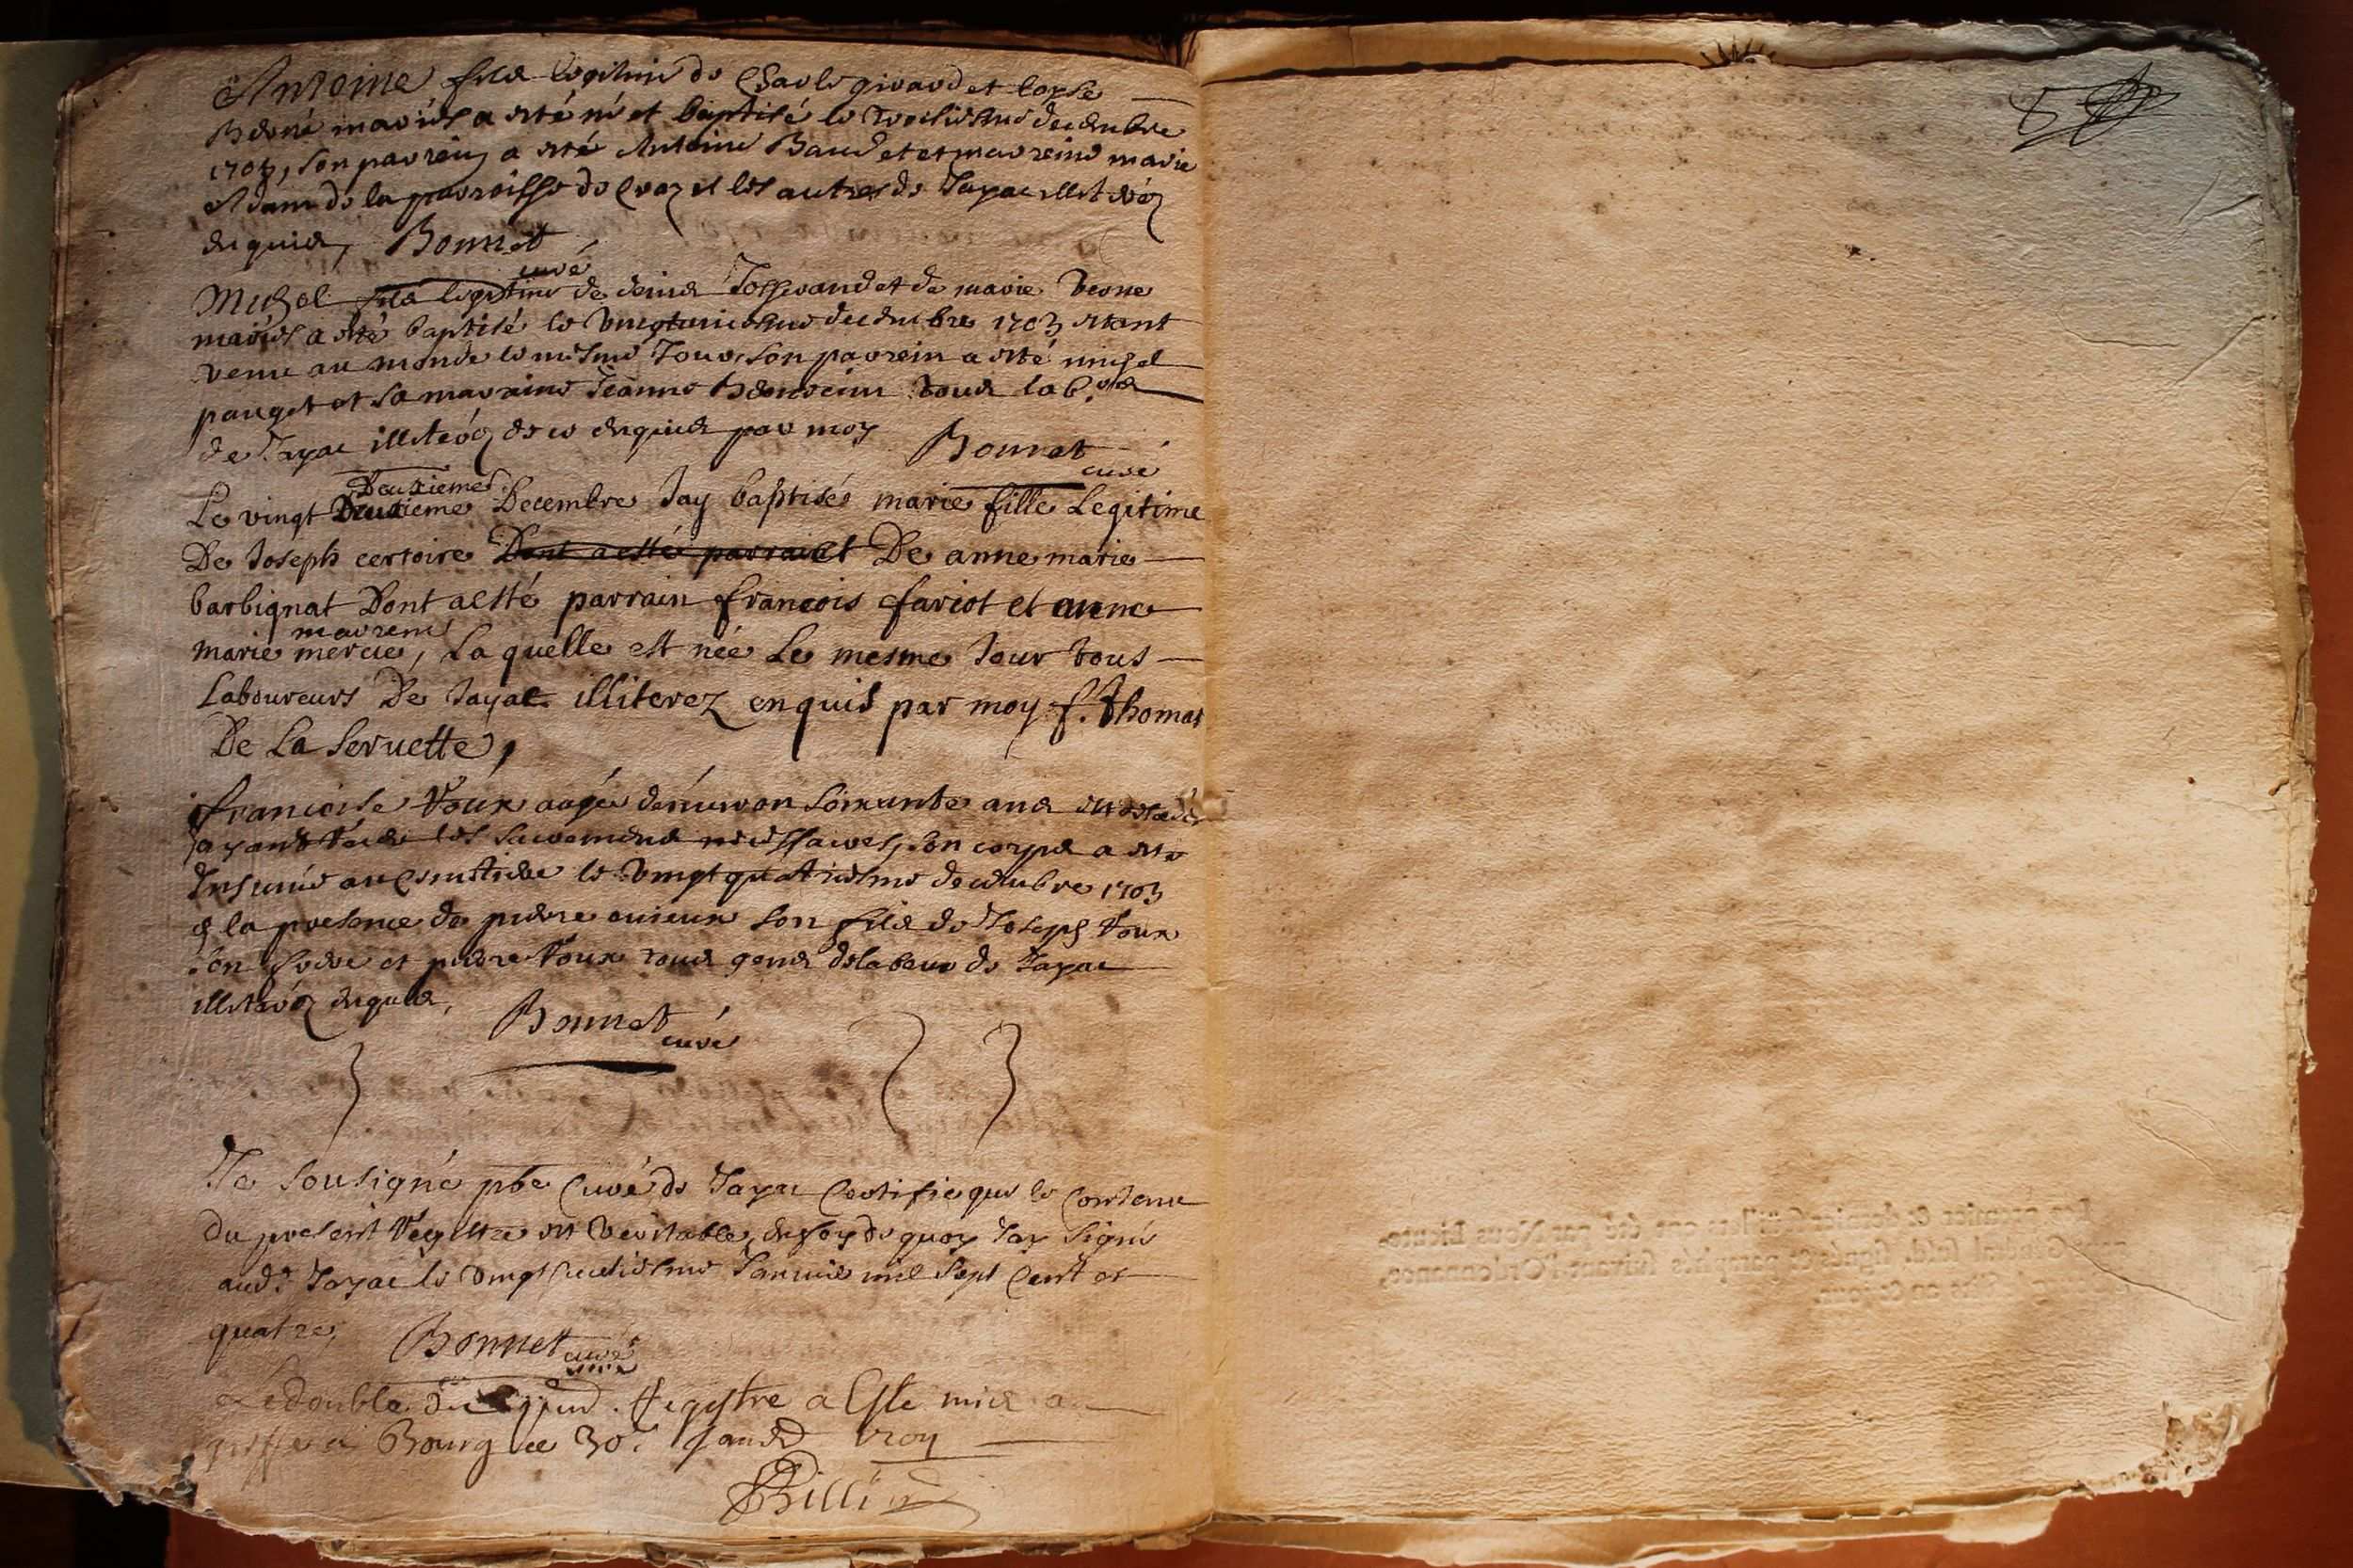 Antoine fils legitime de Charle girard et
mariés a esté né et baptisé le decembre
1703, son parrein a esté Antoine Baudet et marreine marie
Adam de la parroisse de et les autres de Jayac illiterez
enquis, Bonnet
curé
Michel fils legitime de denis Josserand et de marie verne
mariés a esté baptisé le vingtuniesme decembre 1703 estant
venu au monde le mesme Jour, son parrein a esté michel
pauget et sa marraine Jeanne tous lab.rs
de Jayac illiterez de ce enquis par moy Bonnet
curé
Deuxieme
Le vingt Deuxieme Decembre Jay baptisé marie fille Legitime
De Joseph certoire Dont a esté parrain et De anne marie
barbignat Dont a esté parrain francois fariot et anne
marreine
marie mercie, Laquelle est née Le mesme Jour tous
Laboureurs De Jayac illiterez enquis par moy f. Thomas
De La Seruette,
francoise Voux aagée denuiron soixante ans
ayant les sacremens necessaires, son corps a esté
Inhumé au Cimetiere le vingt quatriesme decembre 1703
en la presence de pierre son fils de Joseph Voux
son frere et pierre Voux tous gens delabeur de Jayac
illiterez enquis, Bonnet
curé
Je sousigné pbre Curé de Jayac Certifie que le Contenu
du present Registre est veritable, en foy de quoy Jay signé
aud.t Jayac le vingt Januier mil sept Cent et
quatre, Bonnet curé
Le double du Registre a Esté mis au
greffe a Bourg ce 30.e 1704